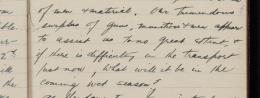 of men & material. Our tremendous
surplus of guns, munitions & men appear
to assist us to no great extent, &
if there is difficulty in the transport
just now, what will it be in the
coming wet season?